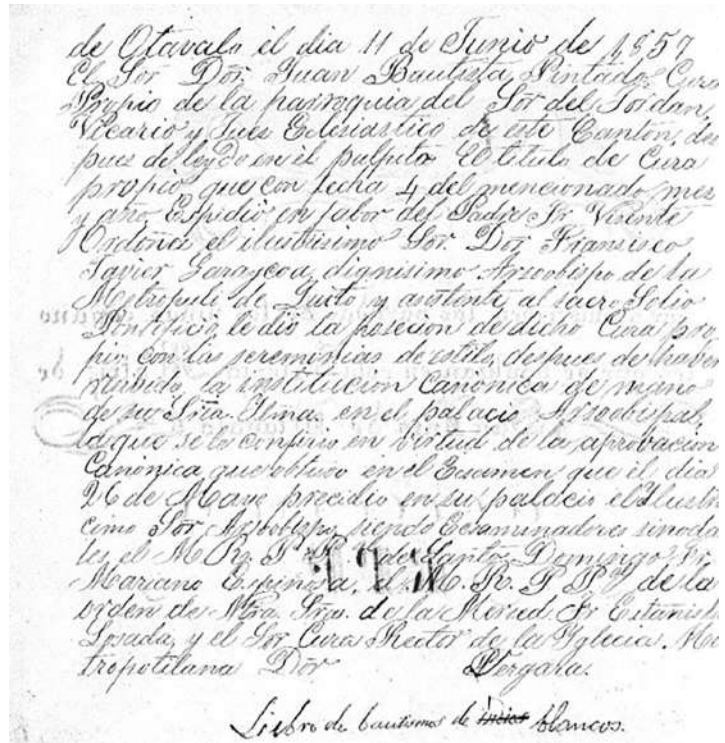 de Otavalo el dia 11 de Junio de 1857
El Sor Dor. Juan Bautista Pintado, Cura
Propio de la parroquia del Sor del Jordan,
Vicario y Jues Eclesiastico de este Canton, des
pues de leydo en el pulpito El titulo de Cura
propio que con fecha 4 del mencionado mes
y año Espidio en fabor del Padre Fr Visente
Ordoñes el ilustrisimo Sor. Dor Fransisco
Javier Garaycoa, dignisimo Arzobispo de la
Metropoli de Quito y asistente al sacro Solio
Pontificio, le dio la posecion de dicho Cura pro
pio, con las seremonias de estilo, despues de haber
resibido la institucion Canonica de mano
de su Sria. Ilma. en el palacio Arzobispal,
la que se le confirio en virtud de la aprobacion
Canonica que obtubo en el Ecsamen que el dia
26 de Mayo precidio en su palacio el Ilustri
cimo Sor Arzobispo, siendo Ecsaminadores sinoda
les el M. R. P. de Santo Domingo Fr.
Mariano Espinosa, el M. R. P. de la
orden de Ntra Sra. de la Merced Fr Estanisla
Losada, y el Sor Cura Rector de la Yglecia Me
tropolitana Dor Vergara.
Liebro de bautismos de indios blancos.